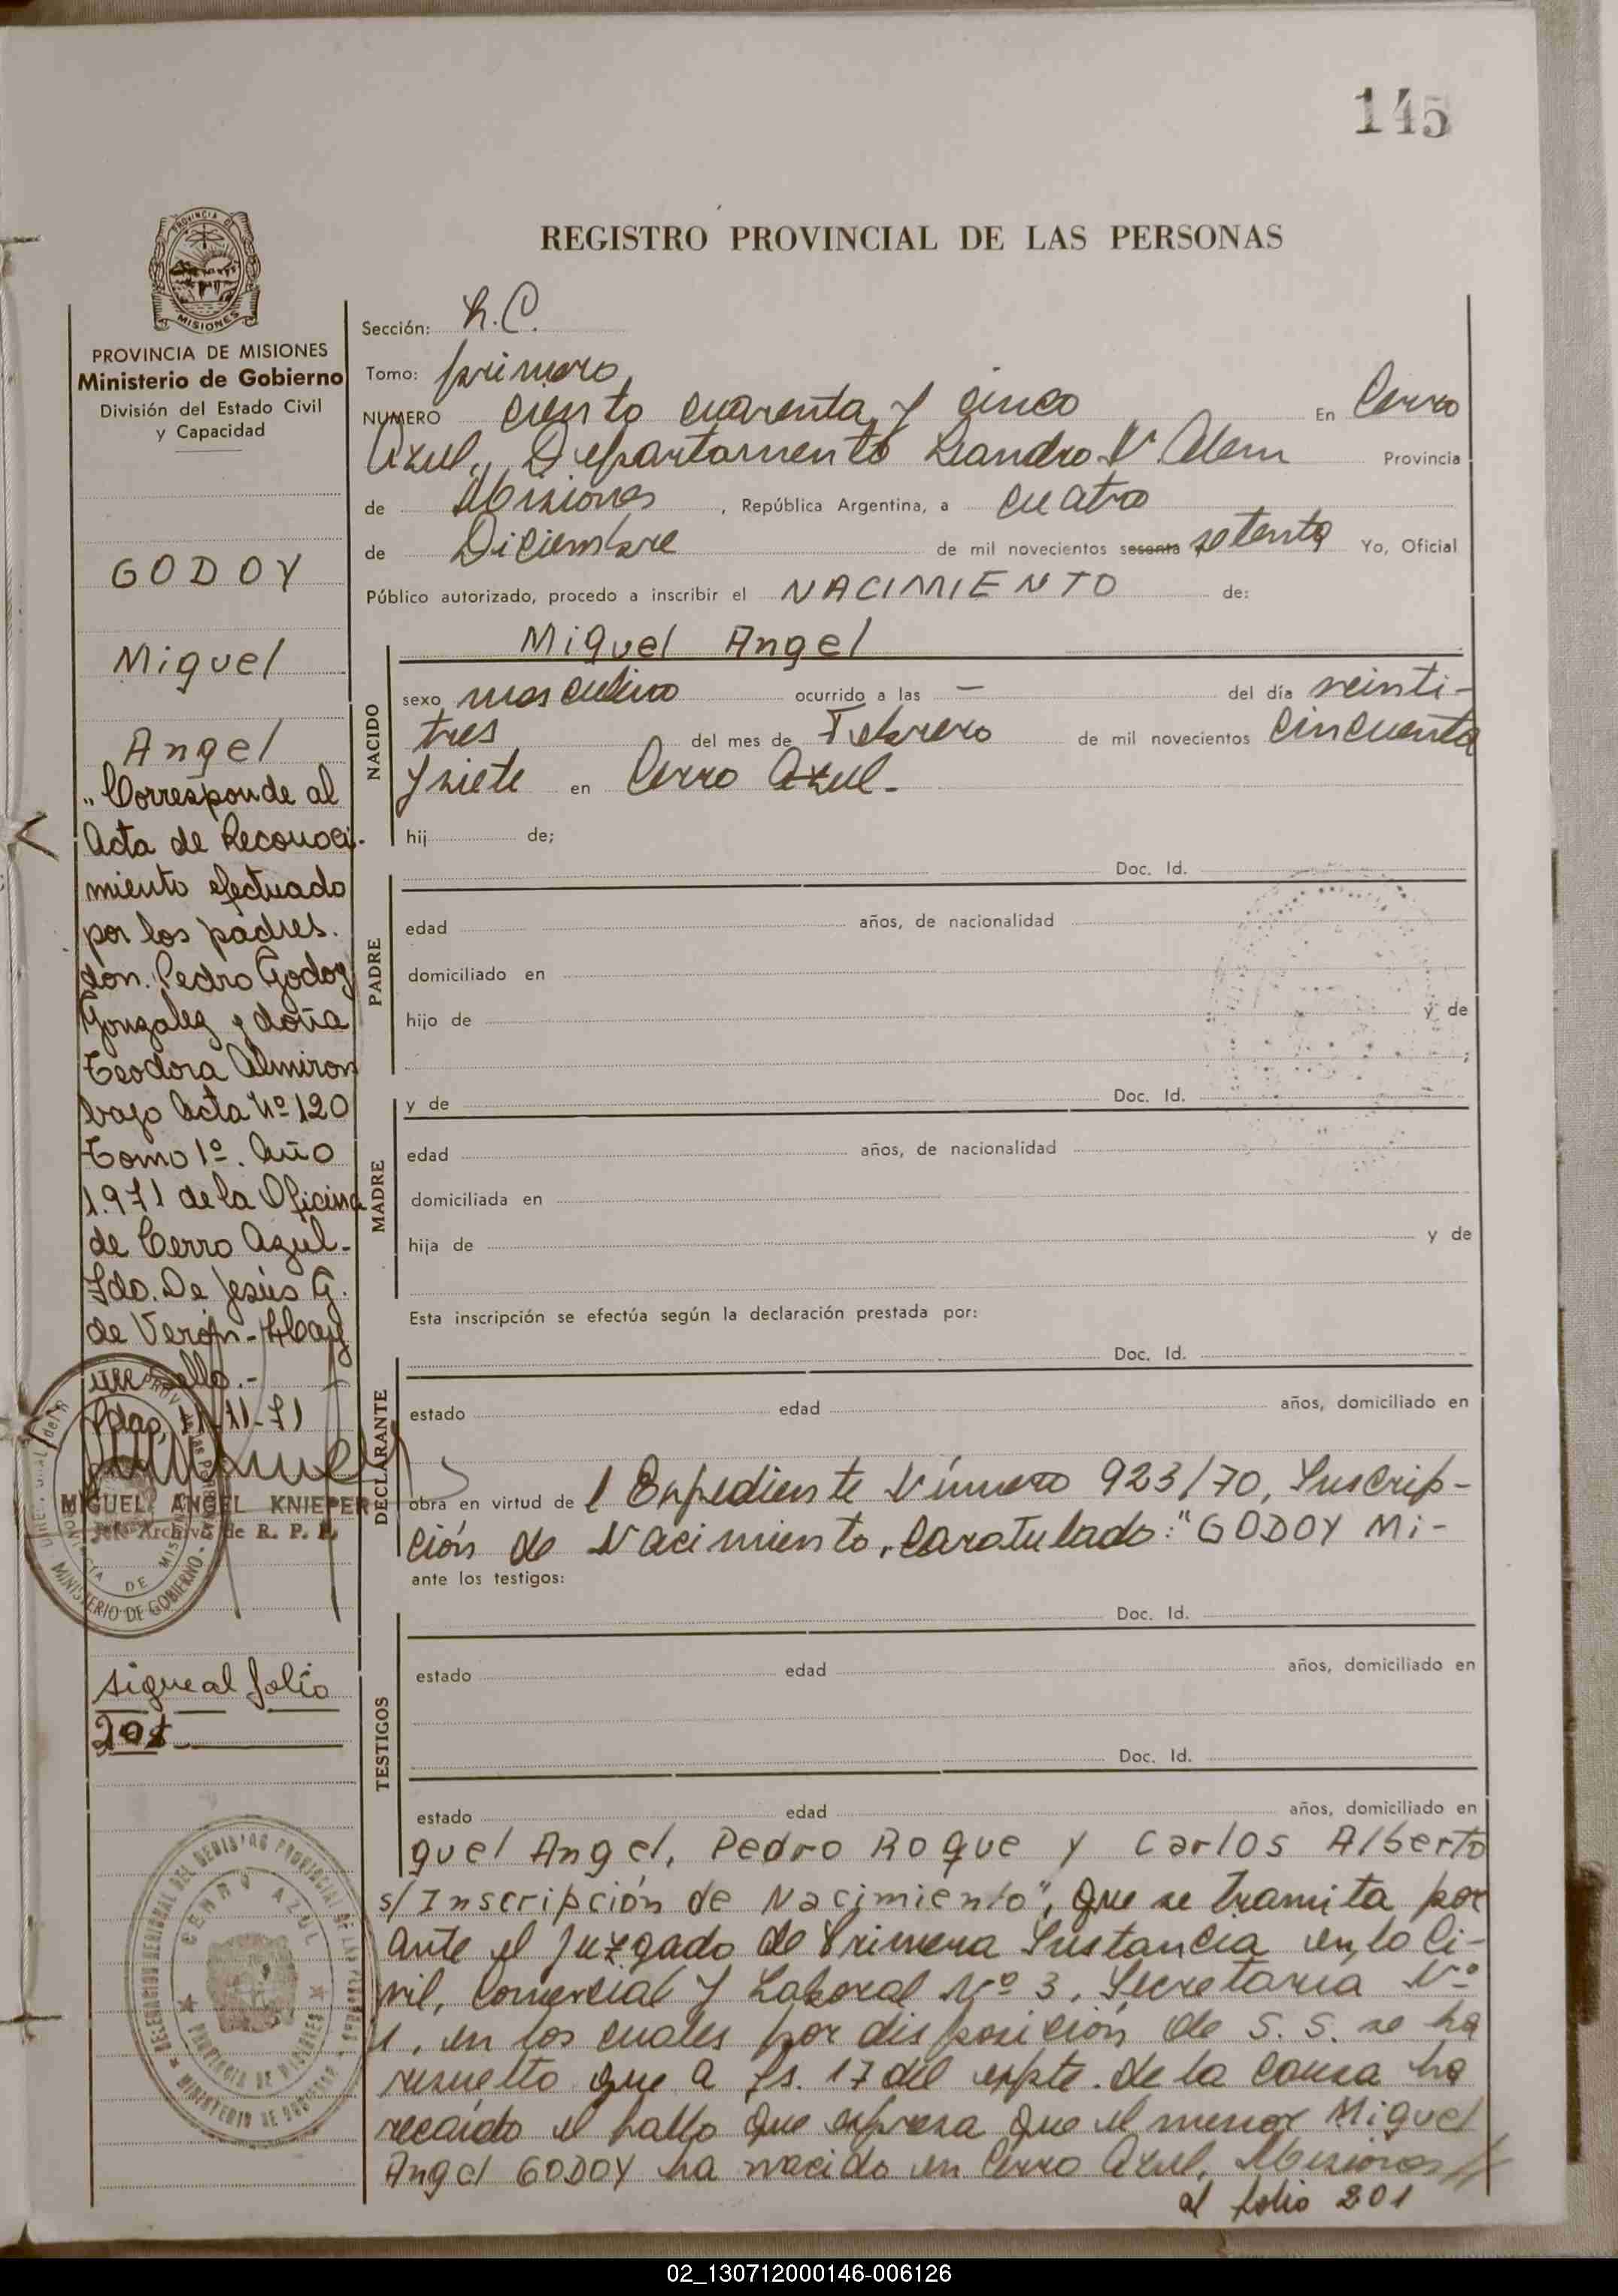 145
PROVINCIA DE
MISIONES
PROVINCIA DE MISIONES
Ministerio de Gobierno
División del Estado Civil
y Capacidad
GODOY
Miguel
Angel
"Corresponde al
Acta de Reconoci-
miento efectuado
por los padres.
don. Pedro Godoy
Gonzalez y doña
Teodora Almiron
bajo Acta Nº 120
Tomo 1º. Año
1.971 de la Oficina
de Cerro Azul-
Fdo. De Jesús G.
de Verón - Hay
un sello.-
Pdas, 11-11-71
MIGUEL ANGEL KNIEPER
Jefe Archivo de R. P. P.
MINISTERIO DE GOBIERNO
sigue al folio
201
CERRO AZUL
PROVINCIA DE MISIONES
REGISTRO PROVINCIAL DE LAS PERSONAS
Sección: N.C.
Tomo: primero
NUMERO ciento cuarenta y cinco En Cerro
Azul, Departamento Leandro N. Alem Provincia
de Misiones, República Argentina, a cuatro
de Diciembre de mil novecientos sesenta setenta Yo, Oficial
Público autorizado, procedo a inscribir el NACIMIENTO de:
Miguel Angel
NACIDO
sexo masculino ocurrido a las - del día veinti-
tres del mes de Febrero de mil novecientos cincuenta
y siete en Cerro Azul-
hij de;
Doc. Id.
PADRE
edad años, de nacionalidad
domiciliado en
hijo de y de
;
y de Doc. Id.
MADRE
edad años, de nacionalidad
domiciliada en
hija de y de
Esta inscripción se efectúa según la declaración prestada por:
Doc. Id.
DECLARANTE
estado edad años, domiciliado en
obra en virtud de l Expediente Número 923/70, Inscrip-
ción de Nacimiento, caratulado: "GODOY Mi-
ante los testigos:
Doc. Id.
TESTIGOS
estado edad años, domiciliado en
Doc. Id.
estado edad años, domiciliado en
guel Angel, Pedro Roque y Carlos Alberto
s/ Inscripción de Nacimiento", que se tramita por
ante el Juzgado de Primera Instancia en lo Ci-
vil, Comercial y Laboral Nº 3, Secretaria Nº
1, en los cuales por disposición de S. S. se ha
resuelto que a fs. 17 del expte. de la causa ha
recaído el fallo que expresa que el menor Miguel
Angel GODOY ha nacido en Cerro Azul, Misiones //
al folio 201
02_130712000146-006126